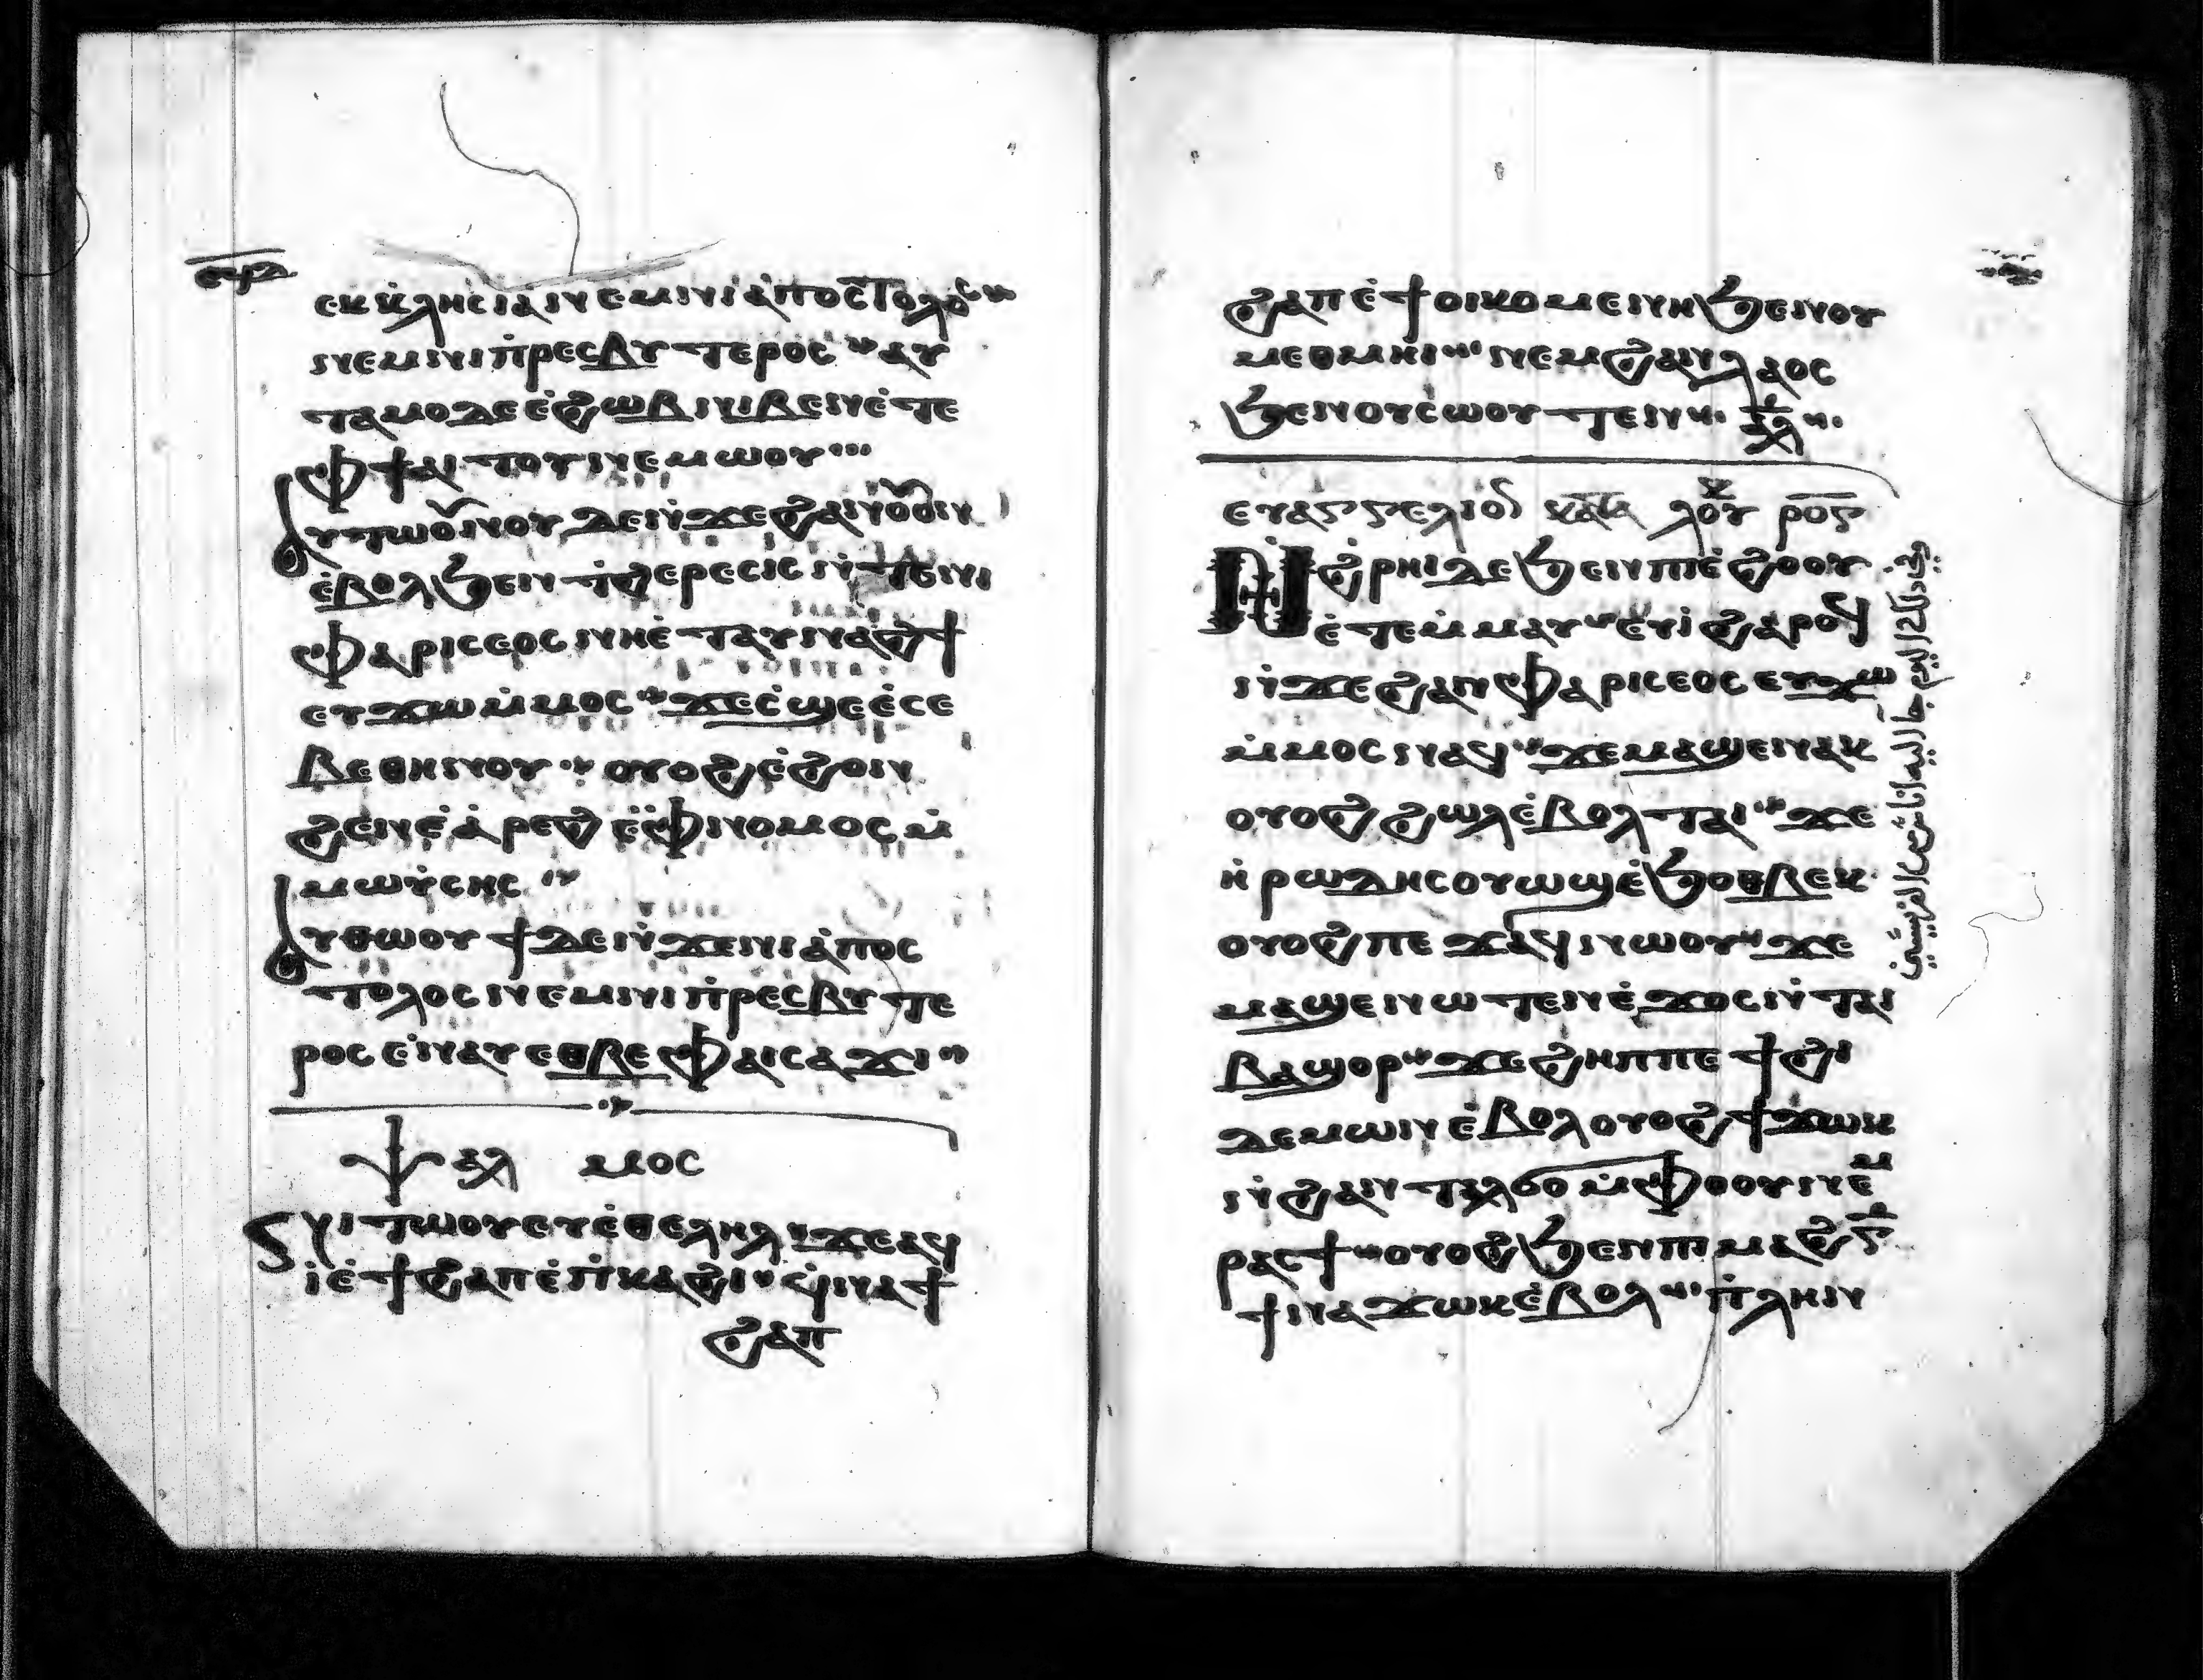 ⲉⲕⲕ̀ⲗⲏⲥⲓⲁⲛⲉⲙⲛⲓⲁ̀ⲡⲟⲥⲧⲟⲗⲟⲥ
ⲛⲉⲙⲛⲓⲡ̀ⲣⲉⲥⲃⲩⲧⲉⲣⲟⲥ ⲁⲩ
ⲧⲁⲙⲟⲇⲉⲉ̀ϩⲱⲃⲛⲓⲃⲉⲛⲉ̀ⲧⲉ
ⲫϯⲁⲓⲧⲟⲩⲛⲉⲙⲱⲟⲩ
ⲁⲩⲧⲱⲟⲩⲛⲟⲩⲇⲉⲛ̀ϫⲉϩⲁⲛⲟⲩⲟⲛ
ⲉ̀ⲃⲟⲗϧⲉⲛϯϩⲉⲣⲉⲥⲓⲥⲛ̀ⲧⲉⲛⲓ
ⲫⲁⲣⲓⲥⲉⲟⲥⲛⲏⲉ̀ⲧⲁⲩⲛⲁϩϯ
ⲉⲩϫⲱⲙ̀ⲙⲟⲥ ϫⲉⲥ̀ϣⲉⲉ̀ⲥⲉ
ⲃⲉⲑⲏⲛⲟⲩ ⲟⲩⲟϩⲉ̀ϩⲟⲛ
ϩⲉⲛⲉ̀ⲁ̀ⲣⲉϩⲉ̀ⲫⲛⲟⲙⲟⲥⲙ̀
ⲙⲱⲩ̀ⲥⲏⲥ
ⲁⲩⲑⲱⲟⲩϯⲇⲉⲛ̀ϫⲉⲛⲓⲁ̀ⲡⲟⲥ
ⲧⲟⲗⲟⲥⲛⲉⲙⲛⲓⲡ̀ⲣⲉⲥⲃⲩⲧⲉ
ⲣⲟⲥⲉ̀ⲛⲁⲩⲉⲑⲃⲉⲫⲁⲓⲥⲁϫⲓ
ⲯⲁⲗ ⲙⲟⲥ
ⲛⲓⲧⲱⲟⲩⲉⲩⲉ̀ⲑⲉⲗⲏⲗ ϫⲉⲁϥ
ⲓ̀ⲉ̀ϯϩⲁⲡⲉ̀ⲡ̀ⲕⲁϩⲓ ϥ̀ⲛⲁϯ
ϩⲁⲡ
ϩⲁⲡⲉ̀ϯⲟⲓⲕⲟⲙⲉⲛⲏϧⲉⲛⲟⲩ
ⲙⲉⲑⲙⲏⲓ ⲛⲉⲙϩⲁⲛⲗⲁⲟⲥ
ϧⲉⲛⲟⲩⲥⲱⲟⲩⲧⲉⲛ
ⲉⲩⲁⲅⲅⲉⲗⲓⲟⲛ ⲕⲁⲧⲁ ⲗⲟⲩⲕ ⲣⲟⲋ
ⲛ̀ϩ̀ⲣⲏⲓⲇⲉϧⲉⲛⲡⲓⲉ̀ϩⲟⲟⲩ
ⲉ̀ⲧⲉⲙⲙⲁⲩ ⲉⲩⲓ̀ϩⲁⲣⲟϥ
ⲛ̀ϫⲉϩⲁⲛⲫⲁⲣⲓⲥⲉⲟⲥⲉⲩϫⲱ
ⲙ̀ⲙⲟⲥⲛⲁϥ ϫⲉⲙⲁϣⲉⲛⲁⲕ
ⲟⲩⲟϩϩⲱⲗⲉ̀ⲃⲟⲗⲧⲁⲓ ϫⲉ
ⲏ̀ⲣⲱⲇⲏⲥⲟⲩⲱϣⲉ̀ϧⲟⲑⲃⲉⲕ
ⲟⲩⲟϩⲡⲉϫⲁϥⲛⲱⲟⲩ ϫⲉ
ⲙⲁϣⲉⲛⲱⲧⲉⲛⲉ̀ϫⲟⲥⲛ̀ⲧⲁⲓ
ⲃⲁϣⲟⲣ ϫⲉϩⲏⲡⲡⲉϯϩⲓ
ⲇⲉⲙⲱⲛⲉ̀ⲃⲟⲗⲟⲩⲟϩϯϫⲱⲕ
ⲛ̀ϩⲁⲛⲧⲁⲗϭⲟⲙ̀ⲫⲟⲟⲩⲛⲉⲙ
ⲣⲁⲥϯ ⲟⲩⲟϩϧⲉⲛⲡⲓⲙⲁϩⲅ̄
ϯⲛⲁϫⲱⲕⲉ̀ⲃⲟⲗ ⲡ̀ⲗⲏⲛ